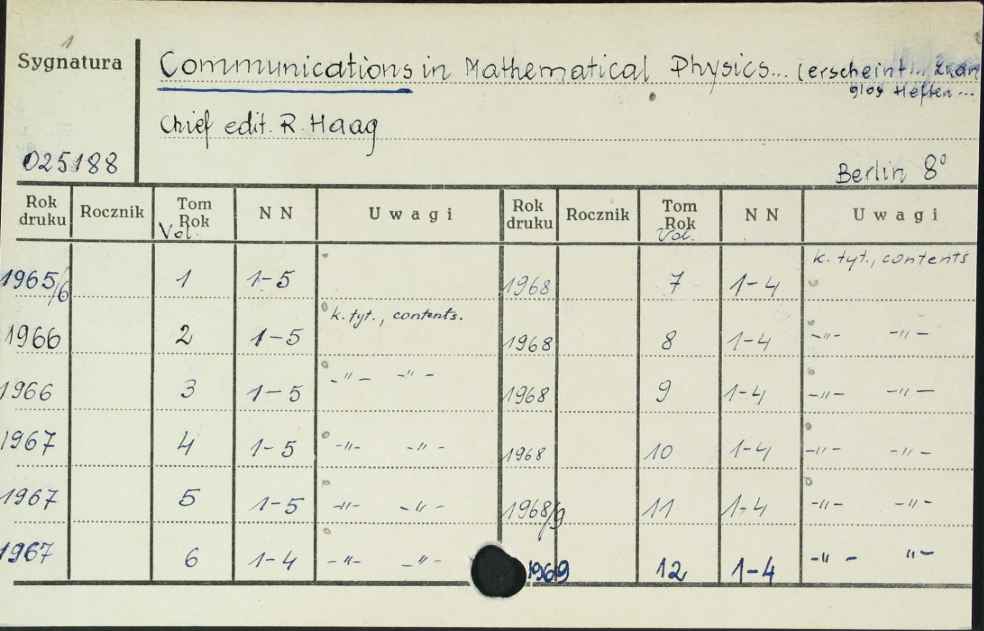 1
Sygnatura
Communications in Mathematical Physics... (erscheint... zwan
glos Heften...
Chief edit. R. Haag
025188
Berlin 8°
Rok druku Rocznik Tom Rok Vol. NN Uwagi Rok druku Rocznik Tom Rok Vol. NN Uwagi
1965/6 1 1-5 1968 7 1-4 k. tyt., contents
1966 2 1-5 k. tyt., contents. 1968 8 1-4 -"- -"-
1966 3 1-5 -"- -"- 1968 9 1-4 -"- -"-
1967 4 1-5 -"- -"- 1968 10 1-4 -"- -"-
1967 5 1-5 -"- -"- 1968/9 11 1-4 -"- -"-
1967 6 1-4 -"- -"- 1969 12 1-4 -"- "-